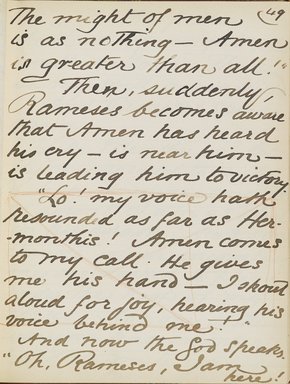 49
The might of men
is as nothing — Amen
is greater than all!"
Then, suddenly,
Rameses becomes aware
that Amen has heard
his cry — is near him —
is leading him to victory.
"Lo! my voice hath
resounded as far as Her-
-monthis! Amen comes
to my call. He gives
me his hand — I shout
aloud for joy, hearing his
voice behind me!"
And now the God speaks.
"Oh, Rameses, I am
here!